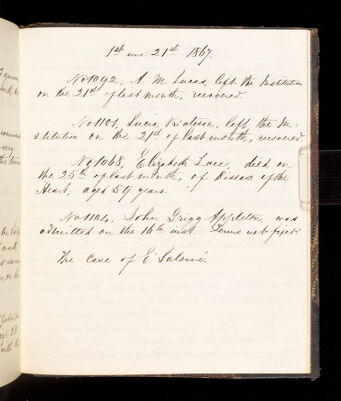 1st mo: 21st 1867.
No 1092, A. M. Lucas, left the Institution
on the 21st of last month, recovered.
No 1101, Lucia, left, the In-
stitution on the 21st of last month, recovered
No 1068, Elizabeth Lace, died on
the 25th of last month, of Disease of the
Heart, aged 59 years.
No 1104. John Grigg Appleton, was
admitted on the 16th inst. Terms not fixed.
The case of E. Salomé.